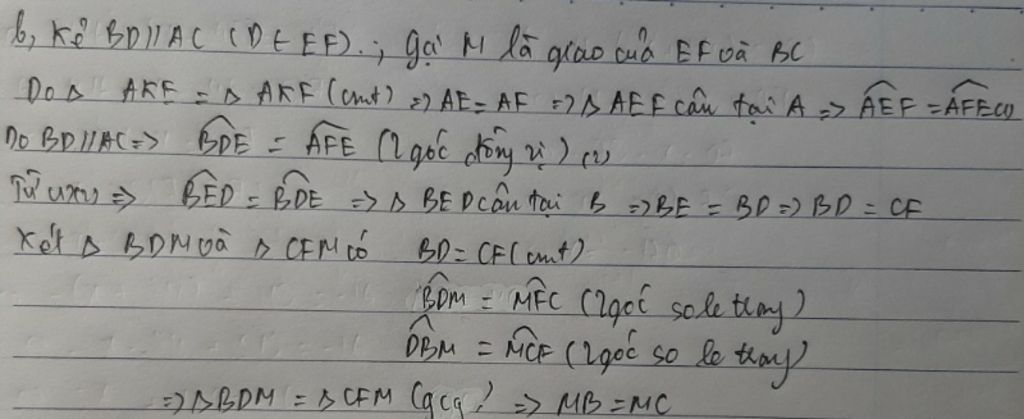 b, Kẻ BD//AC (D ∈ EF).; gọi M là giao của EF và BC
Do Δ AKE = Δ AKF (cmt) => AE = AF => Δ AEF cân tại A => AEF = AFE (1)
Do BD//AC => BDE = AFE (2 góc đồng vị) (2)
Từ (1)(2) => BED = BDE => Δ BED cân tại B => BE = BD => BD = CF
Xét Δ BDM và Δ CFM có BD = CF (cmt)
BDM = MFC (2 góc so le trong)
DBM = MCF (2 góc so le trong)
=> Δ BDM = Δ CFM (gcg) => MB = MC